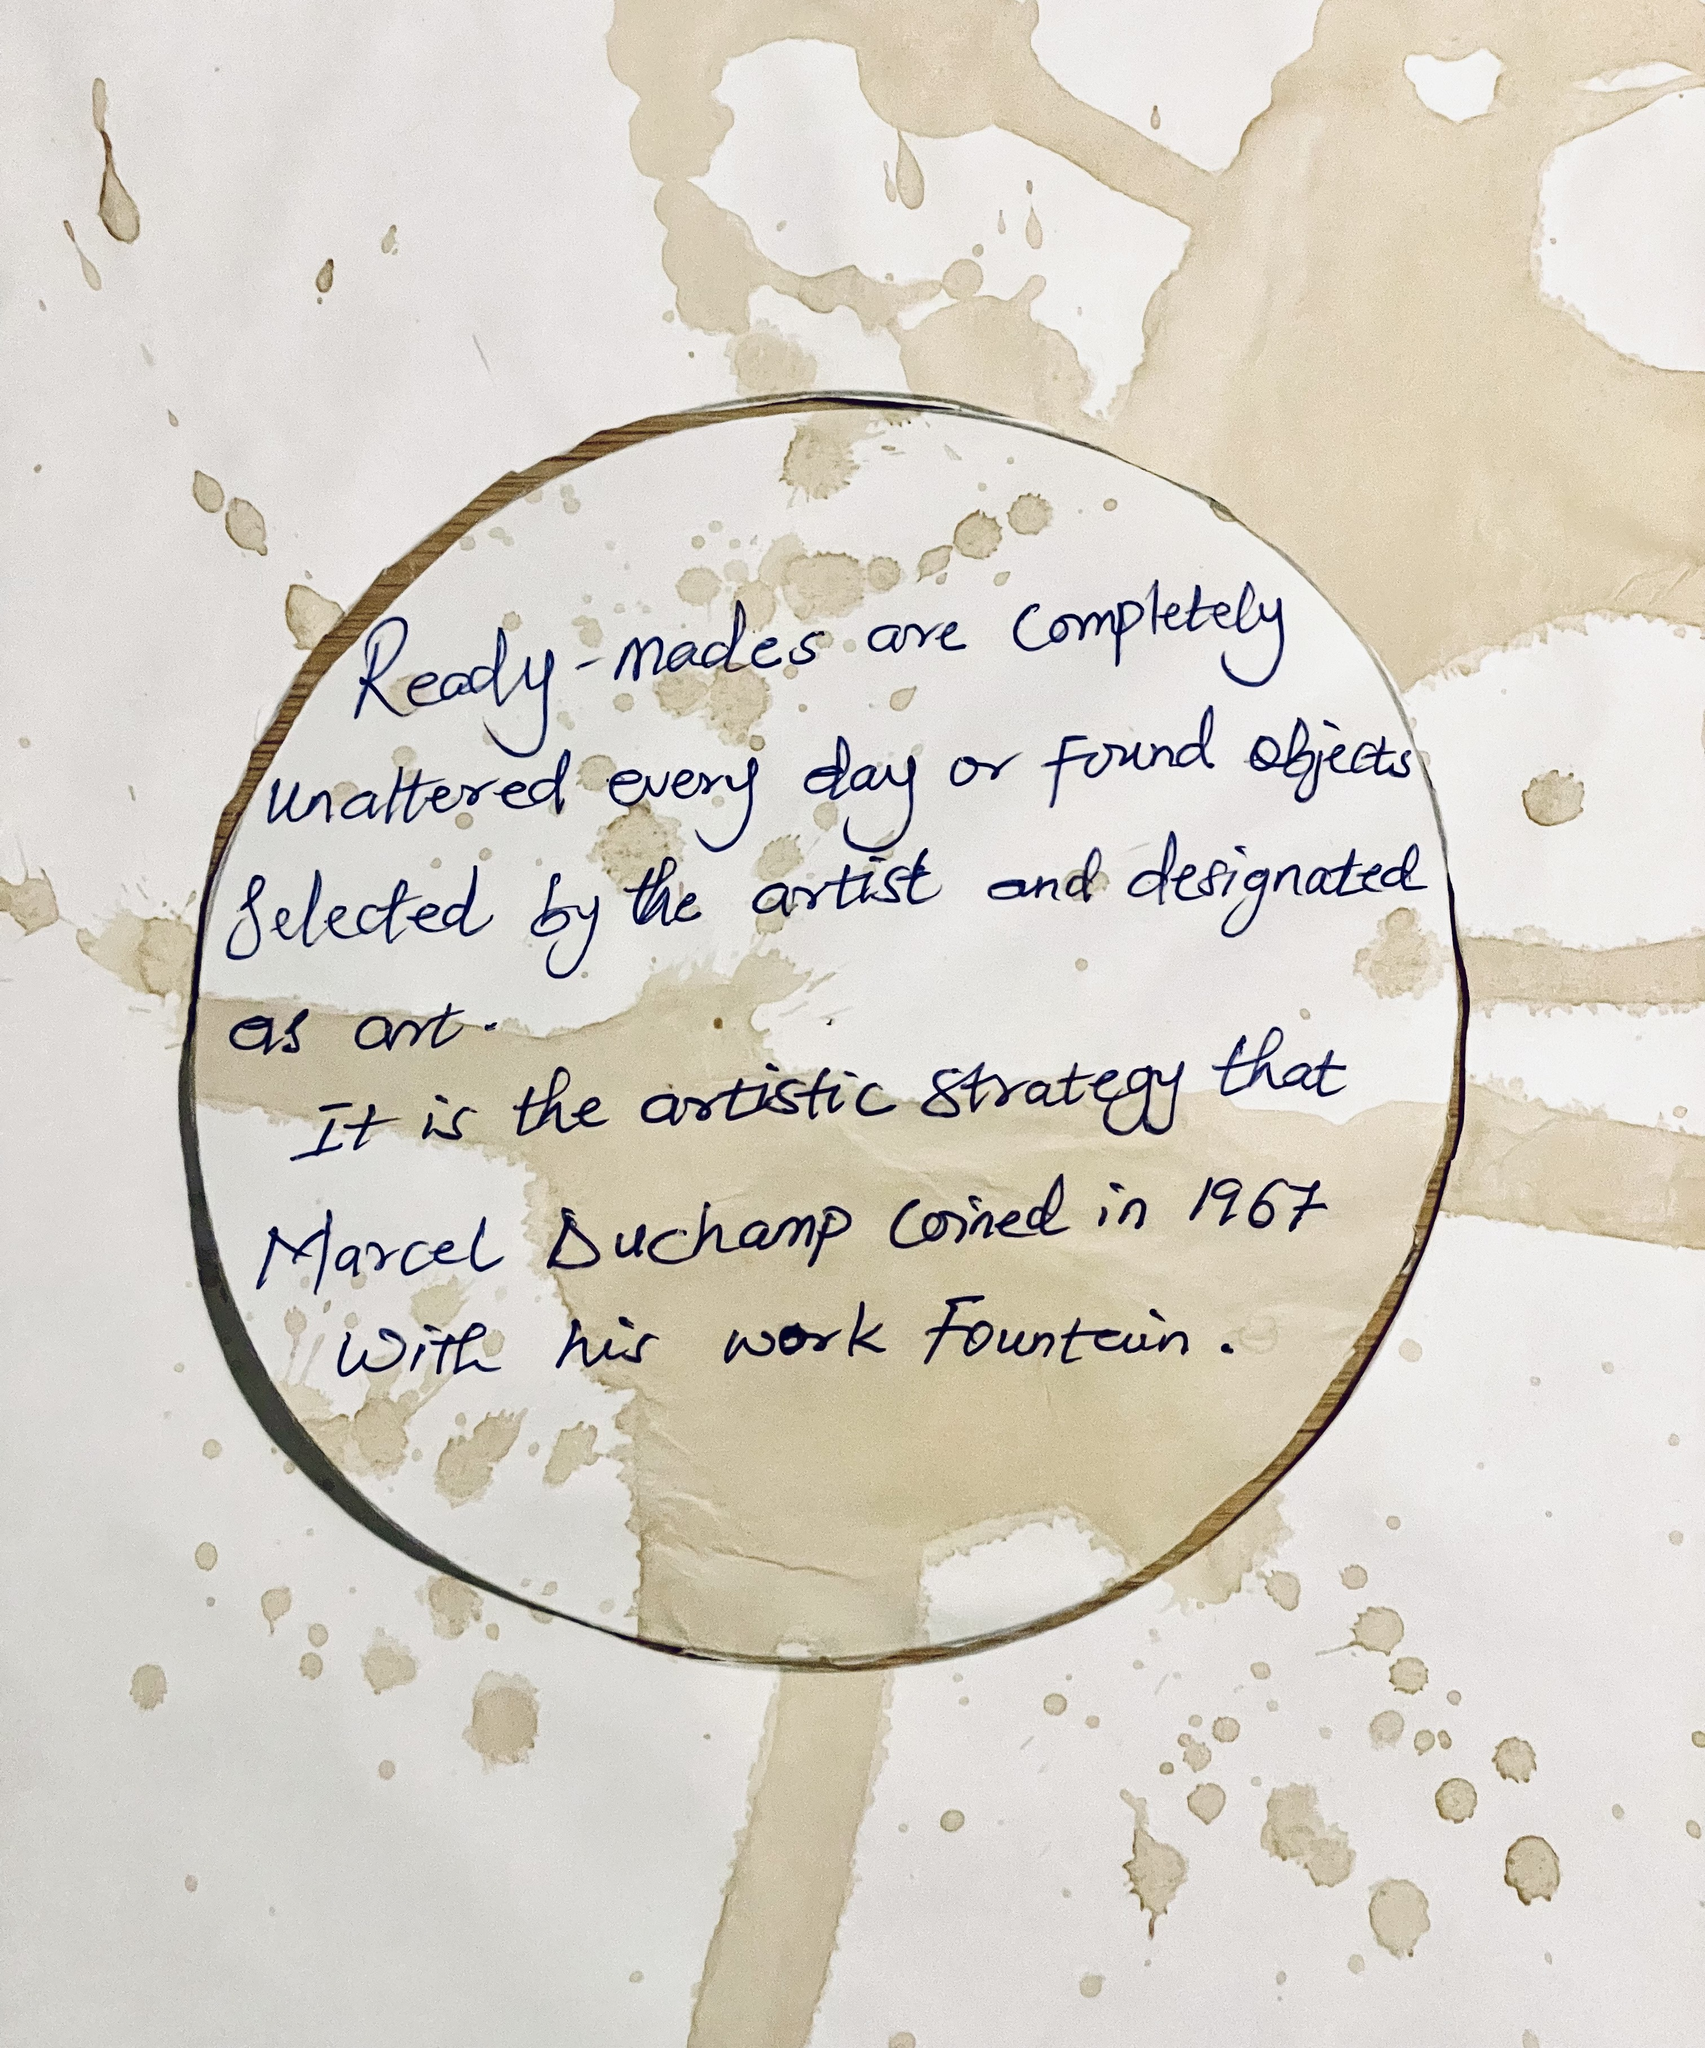 Ready-mades are completely
unaltered every day or found objects
selected by the artist and designated
as art.
It is the artistic strategy that
Marcel Duchamp coined in 1967
with his work Fountain.